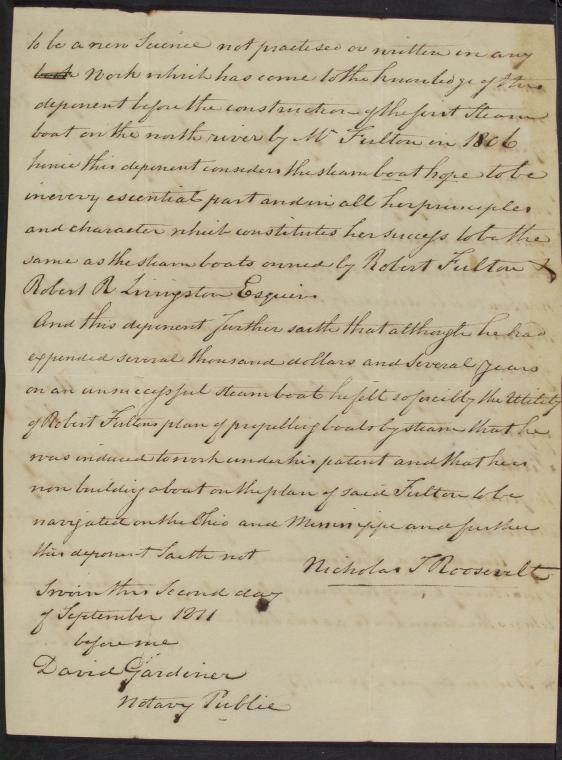 to be a new Science not practised or written in any
book Work which has come to the knowledge of this
deponent before the construction of the first Steam
boat on the north river by Mr Fulton in 1806
hence this deponent considers the steam boat hope to be
in every essential part and in all her principles
and character which constitutes her success to be the
same as the steam boats owned by Robert Fulton &
Robert R Livingston Esquire
And this deponent further saith that although he had
expended several thousand dollars and several years
on an unsuccessful steamboat he felt so forcibly the Utility
of Robert Fultons plan of propelling boats by steam that he
was induced to work under his patent and that he is
now building a boat on the plan of said Fulton to be
navigated on the Ohio and Missisippe and further
this deponent Saith not
Nicholas J Roosevelt
Sworn this Second day
of September 1811
before me
David Gardiner
Notary Public